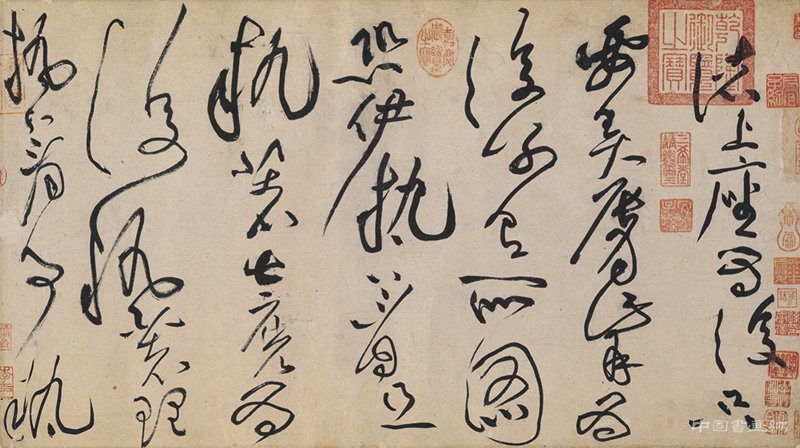 諸上座為復只
要弄脣觜為
復別有所圖
恐伊執著且
執著甚麼為
復執著理
執著事執
乾隆御覽之寶
嘉慶御覽之寶
三希堂精鑑璽
宜子孫